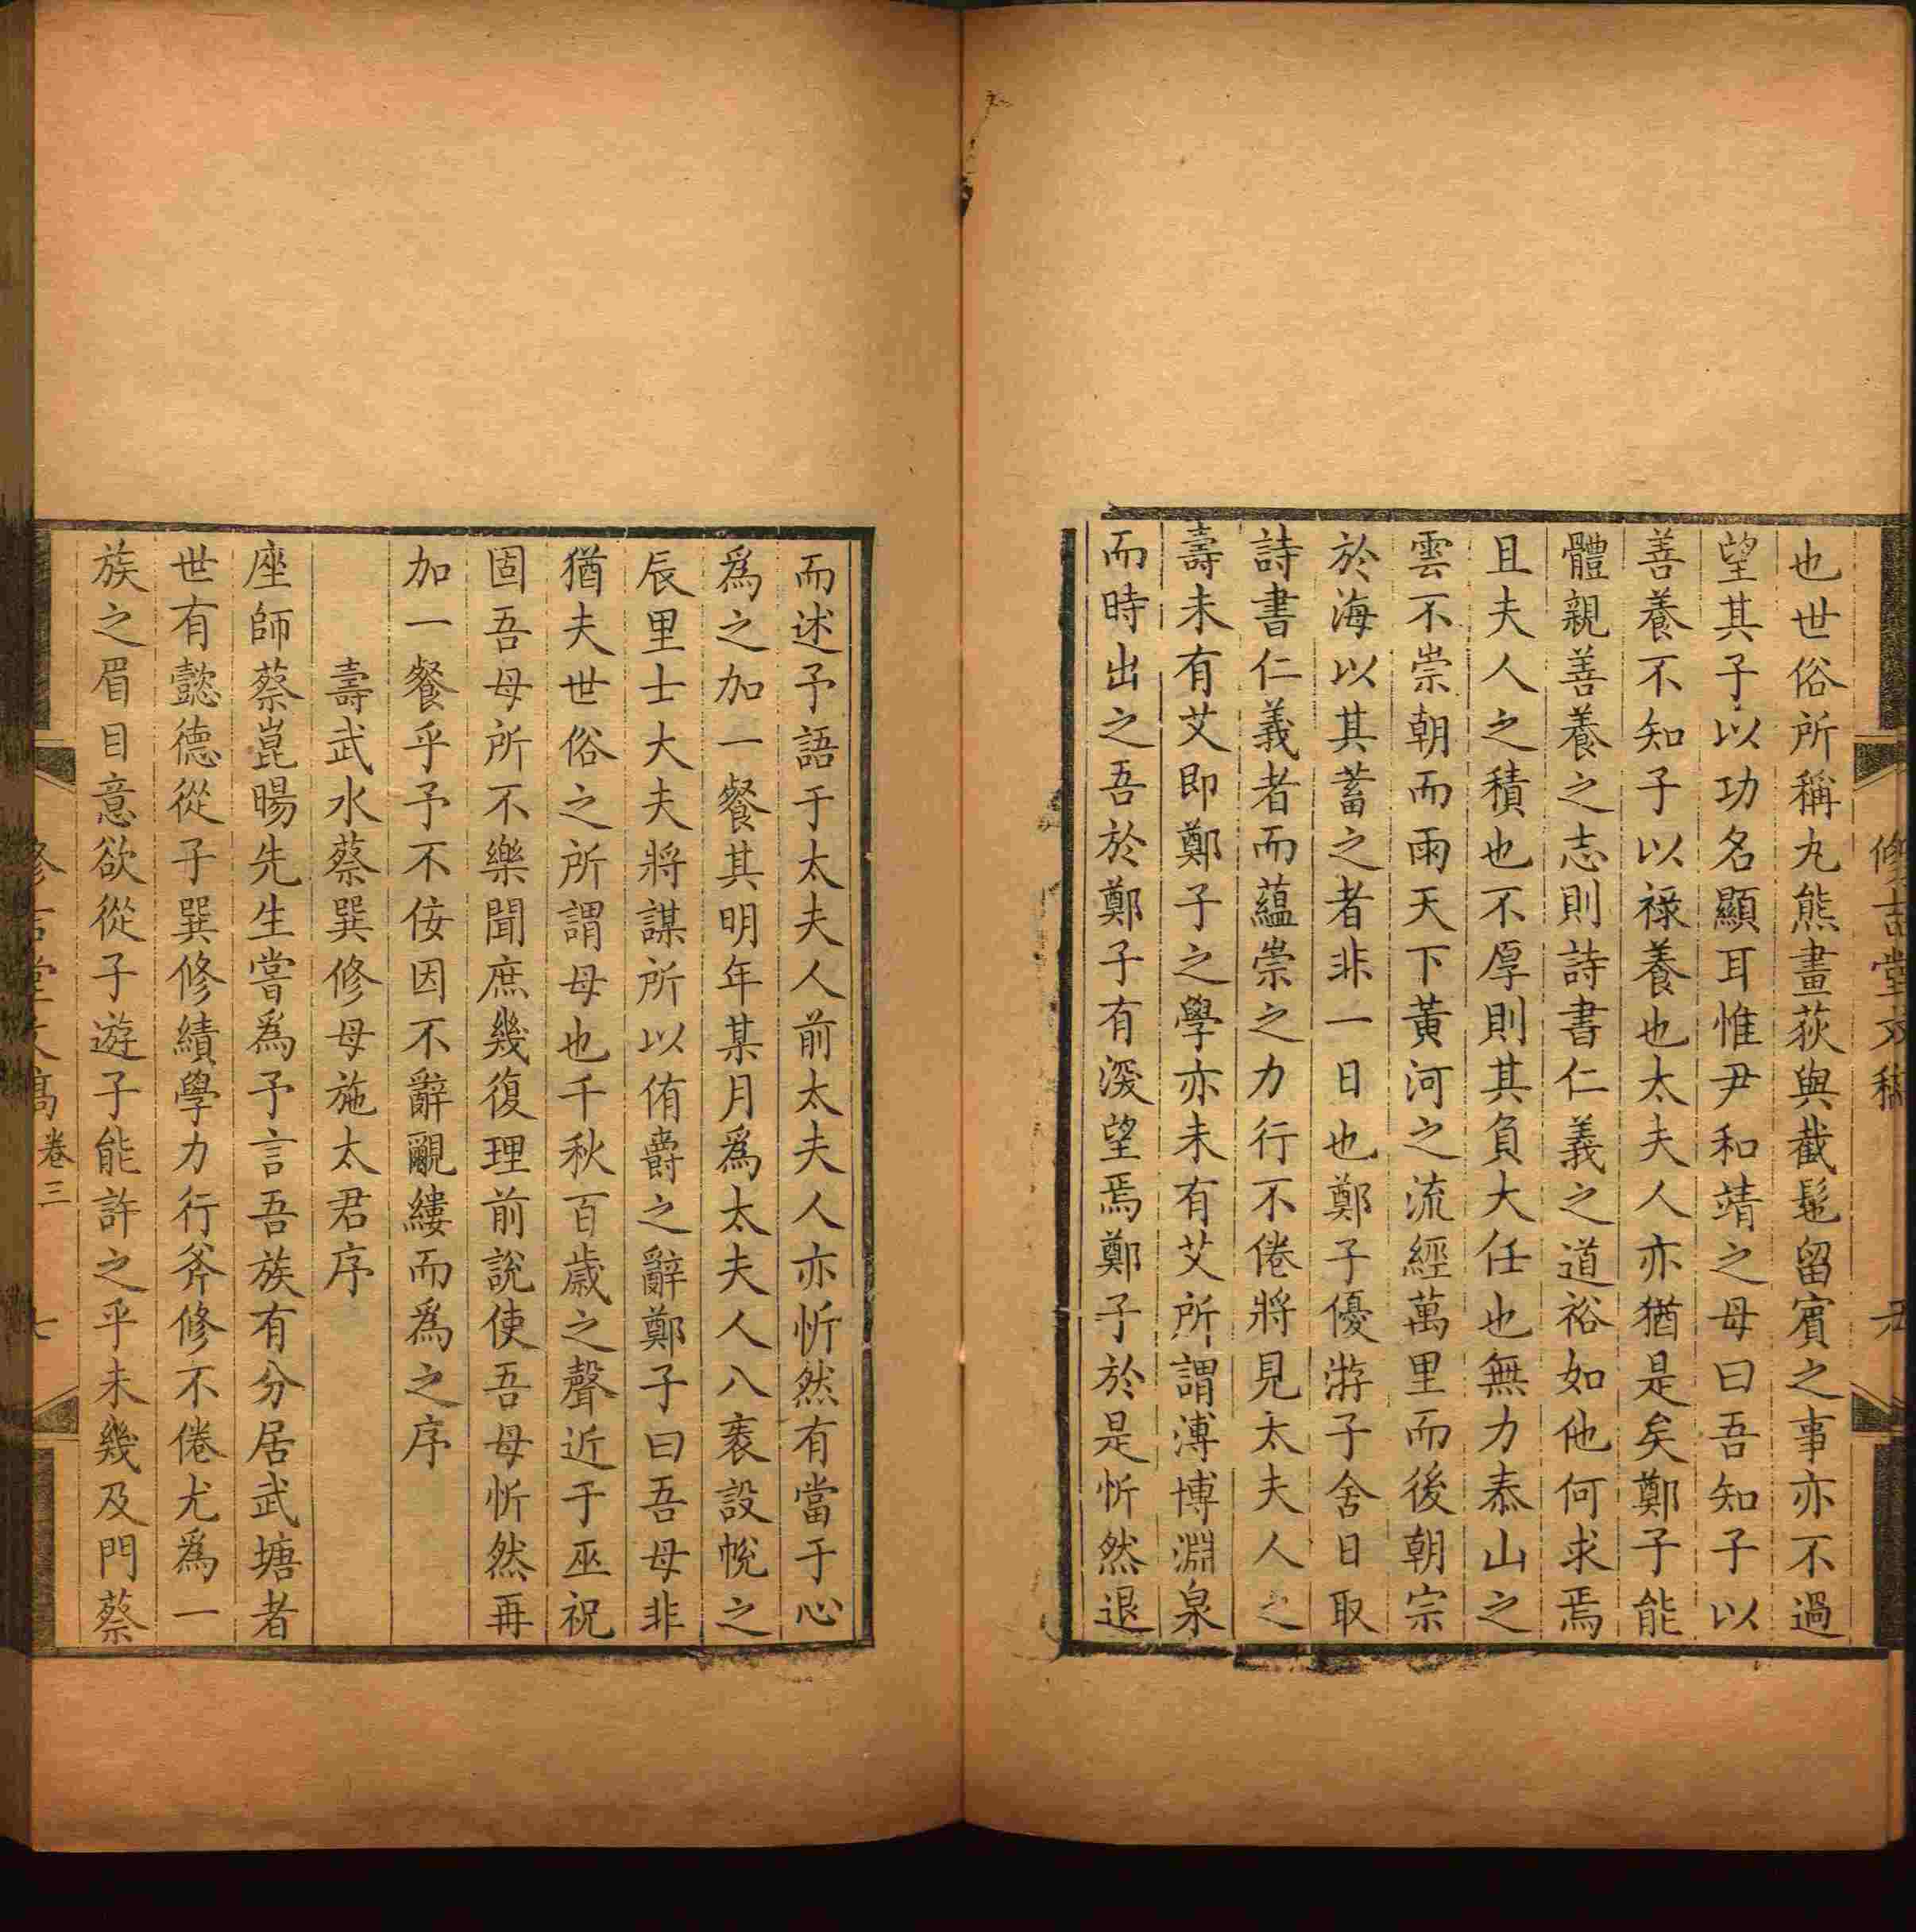 也世俗所稱丸熊畫荻與截髢留賓之事亦不過
望其子以功名顯耳惟尹和靖之母曰吾知子以
善養不知子以祿養也太夫人亦猶是矣鄭子能
體親善養之志則詩書仁義之道裕如他何求焉
且夫人之積也不厚則其負大任也無力泰山之
雲不崇朝而雨天下黃河之流經萬里而後朝宗
於海以其蓄之者非一日也鄭子優游子舍日取
詩書仁義者而蘊崇之力行不倦將見太夫人之
壽未有艾即鄭子之學亦未有艾所謂溥博淵泉
而時出之吾於鄭子有深望焉鄭子於是忻然退
而述予語于太夫人前太夫人亦忻然有當于心
爲之加一餐其明年某月爲太夫人八袠設帨之
辰里士大夫將謀所以侑爵之辭鄭子曰吾母非
猶夫世俗之所謂母也千秋百歲之聲近于巫祝
固吾母所不樂聞庶幾復理前說使吾母忻然再
加一餐乎予不佞因不辭覼縷而爲之序
壽武水蔡巽修母施太君序
座師蔡崑暘先生嘗爲予言吾族有分居武塘者
世有懿德從子巽修績學力行斧修不倦尤爲一
族之眉目意欲從子遊子能許之乎未幾及門蔡
修吉堂文稿 卷三 七